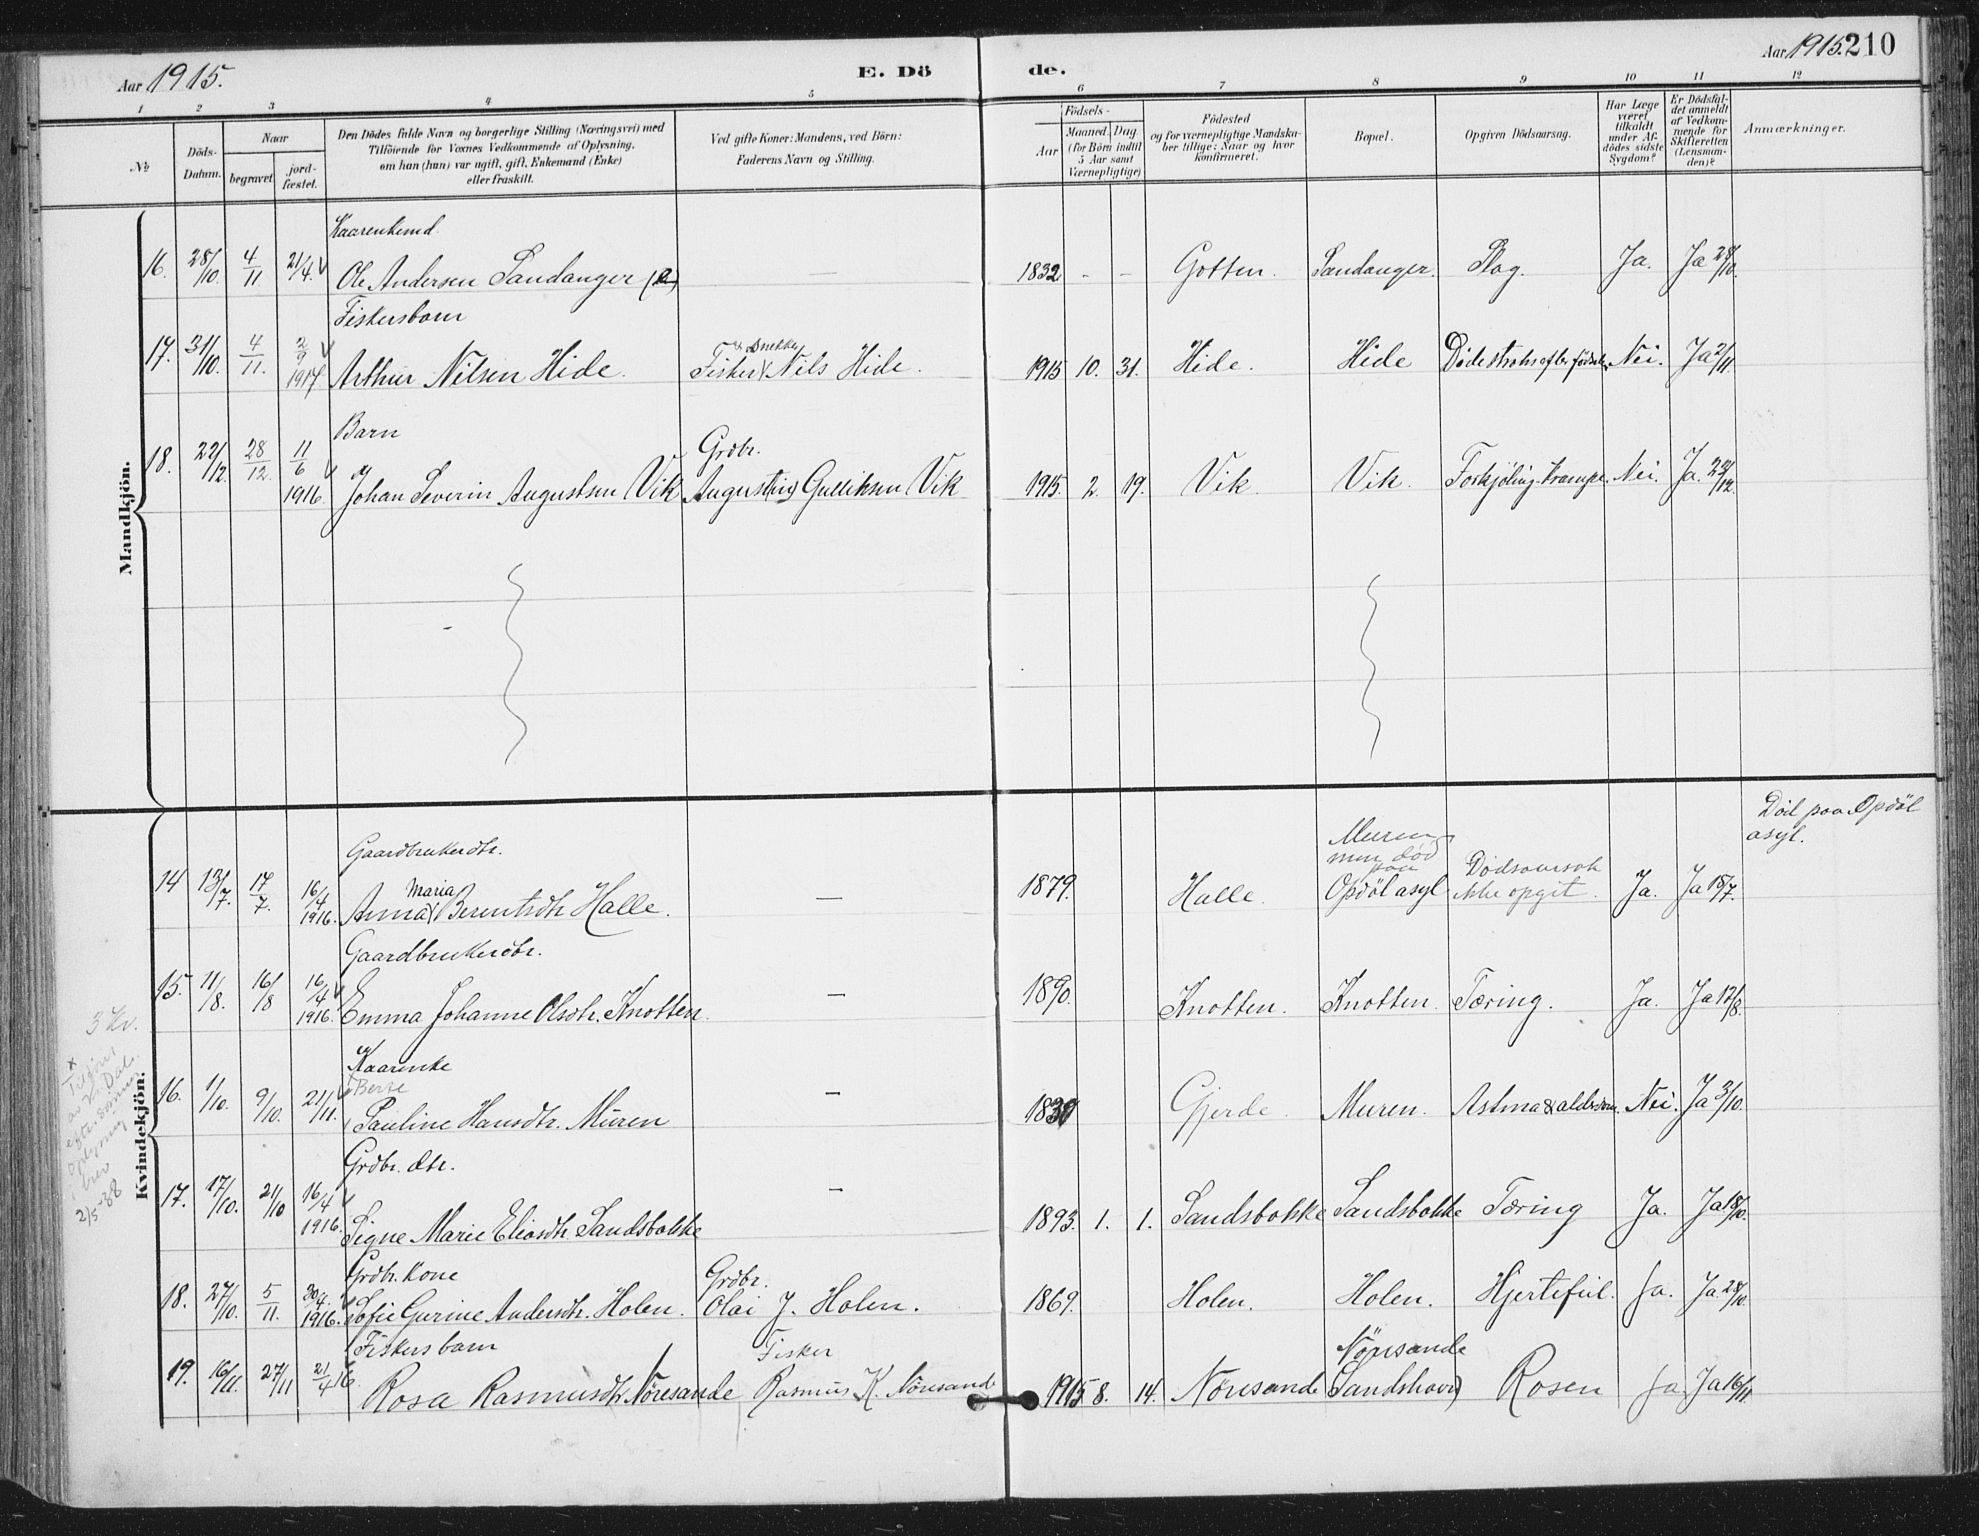 Aar 1915. E. Dö de. Aar 1915. 210
1 2 3 4 5 6 7 8 9 10 11 12
No
Döds-Datum.
Naar
begravet.
jord-fæstet.
Den Dödes fulde Navn og borgerlige Stilling (Næringsvei) med
Tilföiende for Voxnes Vedkommende af Oplysning,
om han (hun) var ugift, gift, Enkemand (Enke)
eller fraskilt.
Ved gifte Koner: Mandens, ved Börn:
Faderens Navn og Stilling.
Födsels-
Aar
Maaned. Dag.
(for Börn indtil
5 Aar samt
Værnepligtige)
Födested
og for værnepligtige Mandska-
ber tillige: Naar og hvor
konfirmeret.
Bopæl.
Opgiven Dödsaarsag.
Har Læge
været
tilkaldt
under Af-
dödes sidste
Sygdom?
Er Dödsfal-
det anmeldt
af Vedkom-
mende for
Skifteretten
(Lensman-
den)?
Anmærkninger.
Mandkjön.
Kaarenkemd.
16. 28/10. 4/11 21/4. Ole Andersen Sandanger — 1832 - - Gotten. Sandanger. Slag. Ja. Ja 28/10.
Fiskersbarn
& Snekker
17. 31/10. 4/11. 2/9 1917 Arthur Nilsen Hide. Fisker Nils Hide. 1915 10. 31. Hide. Hide Döde straks efter födselen. Nei. Ja 2/11.
Barn Grdbr.
18. 22/12. 28/12. 11/6 1916. Johan Severin Augustsen Vik August(in) Gulliksen Vik 1915. 2. 19. Vik. Vik. Forkjöling-krampe. Nei. Ja. 23/12.
Död paa Opdöl
asyl.
Gaardbrukerdtr. Muren
men död
Maria paa Dödsaarsak
14 13/7. 17/7. 16/4 1916. Anna Berentsdtr Halle. — 1879. Halle. Opdöl asyl ikke opgit. Ja. Ja 18/7.
Gaardbrukerdtr.
15. 11/8. 16/8 16/4 1916. Emma Johanne Olsdtr. Knotten. — 1890. Knotten. Knotten. Tæring. Ja. Ja 12/8.
3 Kv.
Kaarenke
Kvindekjön.
16. 1/10. 9/10. 21/11. Pauline Hansdtr. Muren — Gjerde. Muren. Astma & alderdom. Nei. Ja 3/10.
Grdbr. dtr.
17. 17/10. 21/10 16/4 1916. Signe Marie Eliasdtr. Sandsbakke — 1893. 1. 1. Sandsbakke Sandsbakke Tæring Ja. Ja 18/10.
2/5-38
Grdbr. Kone Grdbr.
18. 27/10. 5/11. 30/4. 1916. Sofie Gurine Andersdtr. Holen. Olai J. Holen. 1869. Holen. Holen. Hjertefeil. Ja. Ja. 28/10.
Fiskersbarn Fisker Nöresande
19. 16/11. 27/11 21/4 16. Rosa Rasmusdtr. Nöresande Rasmus K. Nöresand 1915 8. 14. Nöresande (Sandshavn) Rosen Ja Ja 16/11.